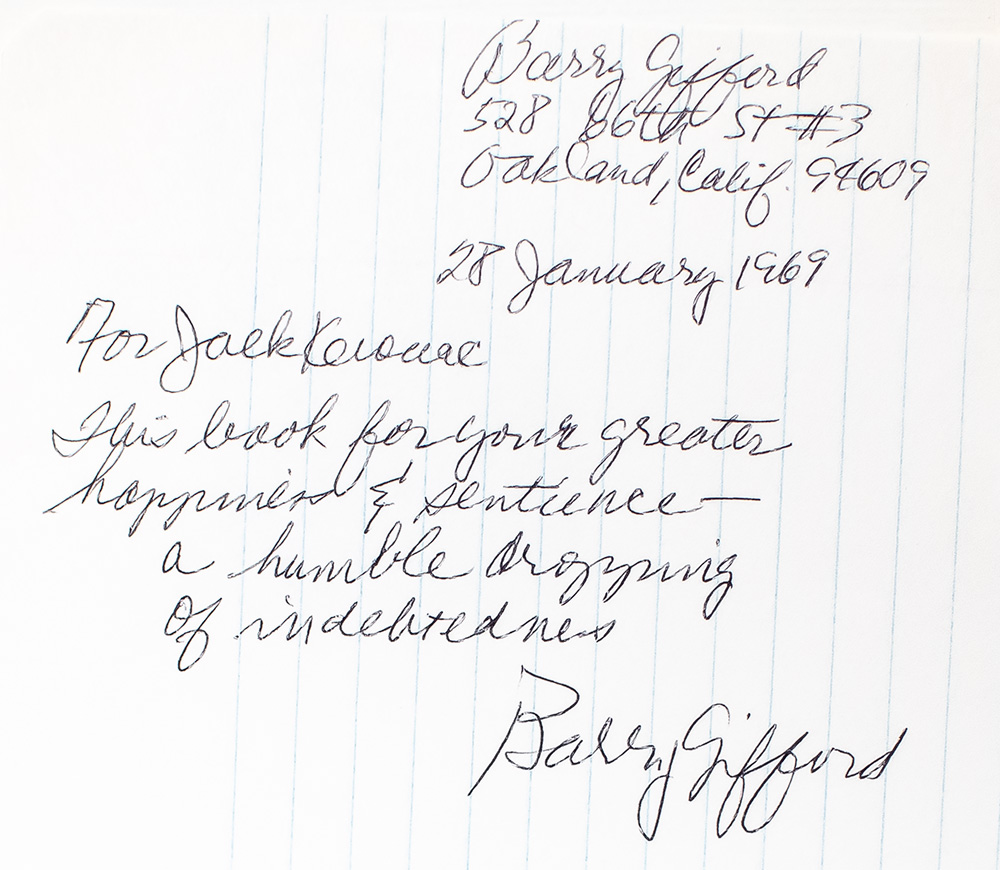 Barry Gifford
528 66th St #3
Oakland, Calif. 94609
28 January 1969
For Jack Kerouac
This book for your greater
happiness & sentience—
a humble dropping
of indebtedness
Barry Gifford